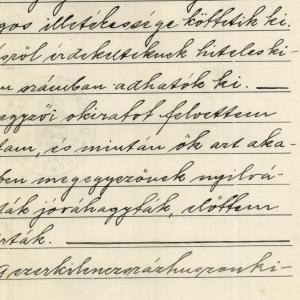 gos illetékessége köttetik ki.
ésről érdekelteknek hiteles ki-
n számban adhatók ki.
egyzői okiratot felvettem
tam, és mintán ők azt aka-
ben megegyezőnek nyilvá-
ták jóváhagyták, előttem
írták.
Ezerkilenczszázhuszonki-